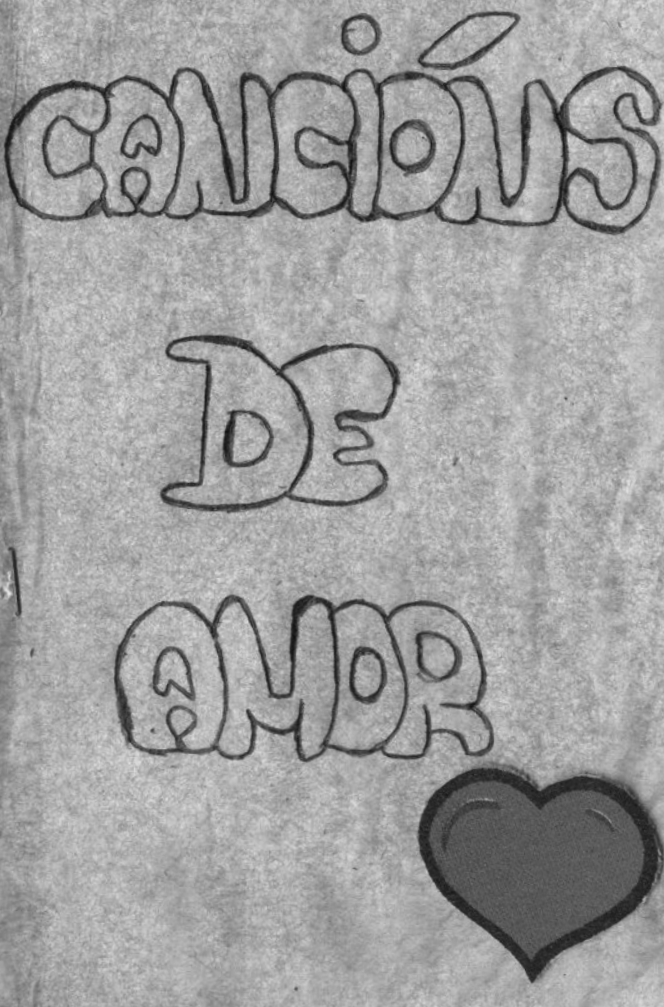 CANCIÓNS
DE
AMOR